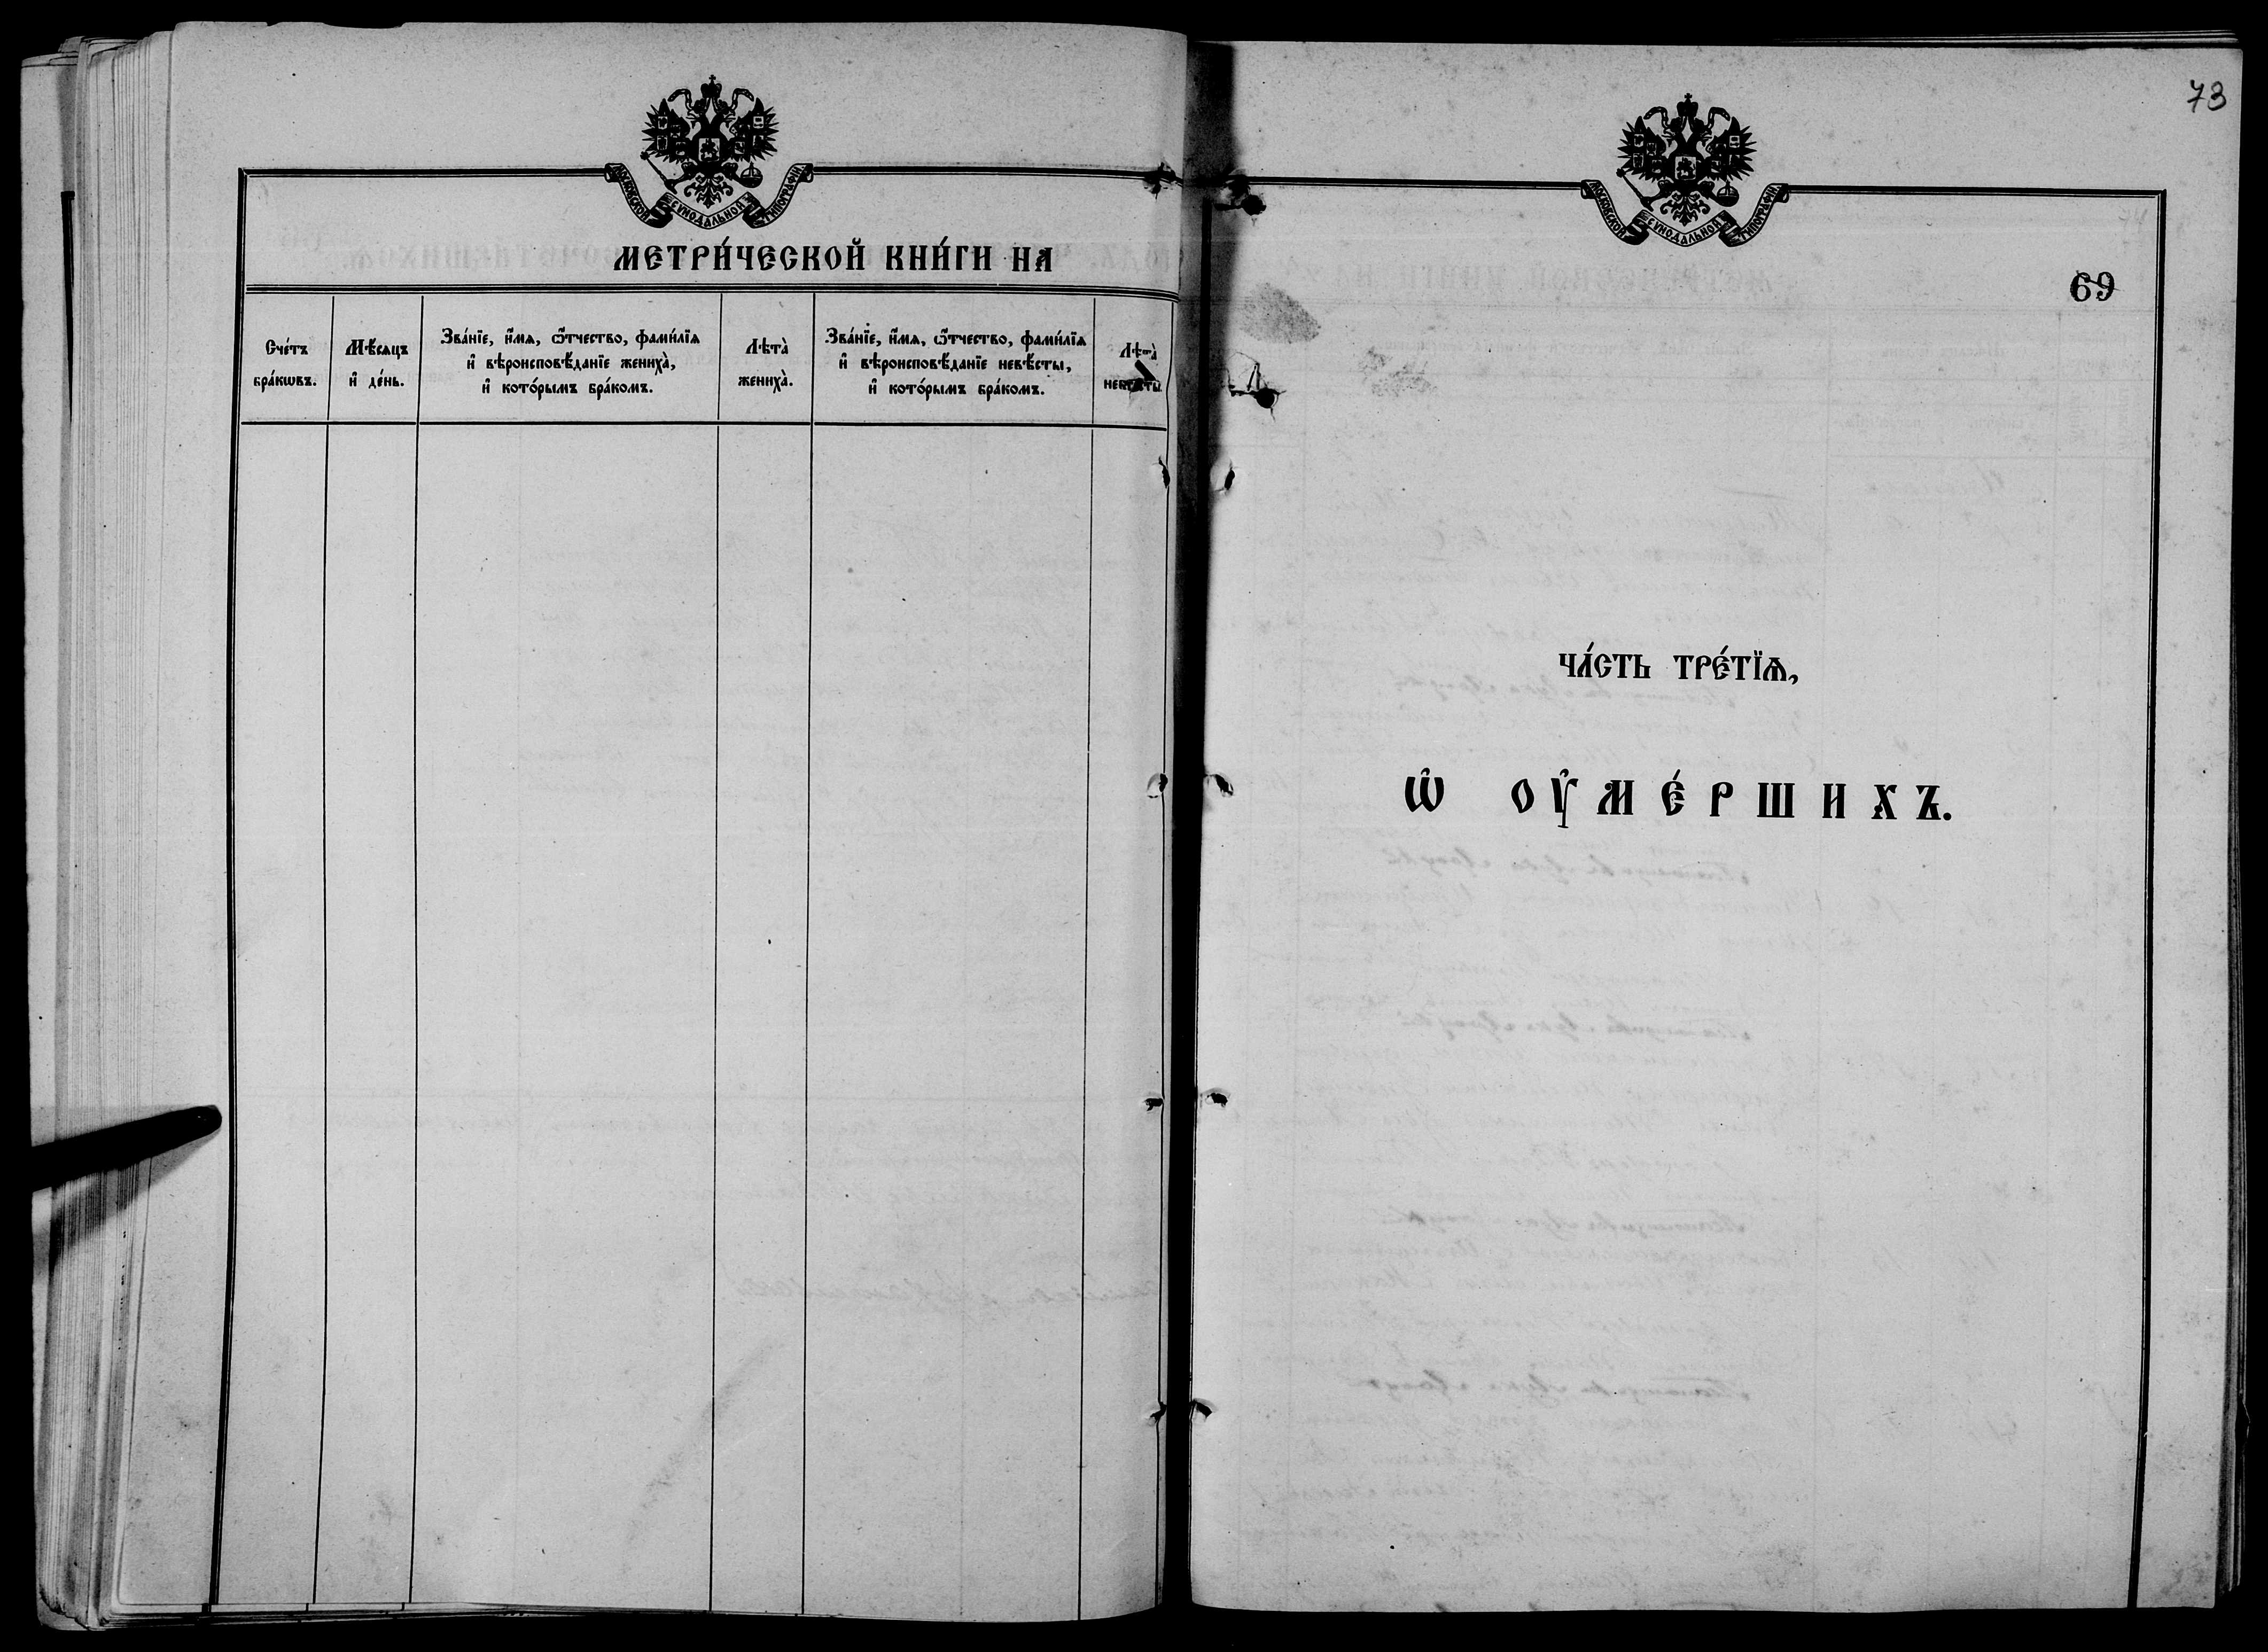 МОСКОВСКОЙ СѴНОДАЛЬНОЙ ТИПОГРАФІИ.
МЕТРИ́ЧЕСКОЙ КНИ́ГИ НА
Сче́тъ
бра́кѡвъ.
Мѣ́сяцъ
и҆ де́нь.
Зва́нїе, и҆́мѧ, ѻ҆́тчество, фами́лїѧ
и҆ вѣроисповѣ́данїе жениха̀,
и҆ кото́рымъ бра́комъ.
Лѣта̀
жениха̀.
Зва́нїе, и҆́мѧ, ѻ҆́тчество, фами́лїѧ
и҆ вѣроисповѣ́данїе невѣ́сты,
и҆ кото́рымъ бра́комъ.
Лѣта̀
невѣ́сты.
73
МОСКОВСКОЙ СѴНОДАЛЬНОЙ ТИПОГРАФІИ.
69
ЧА́СТЬ ТРЕ́ТЇѦ,
Ѡ҆ ОУ҆МЕ́РШИХЪ.